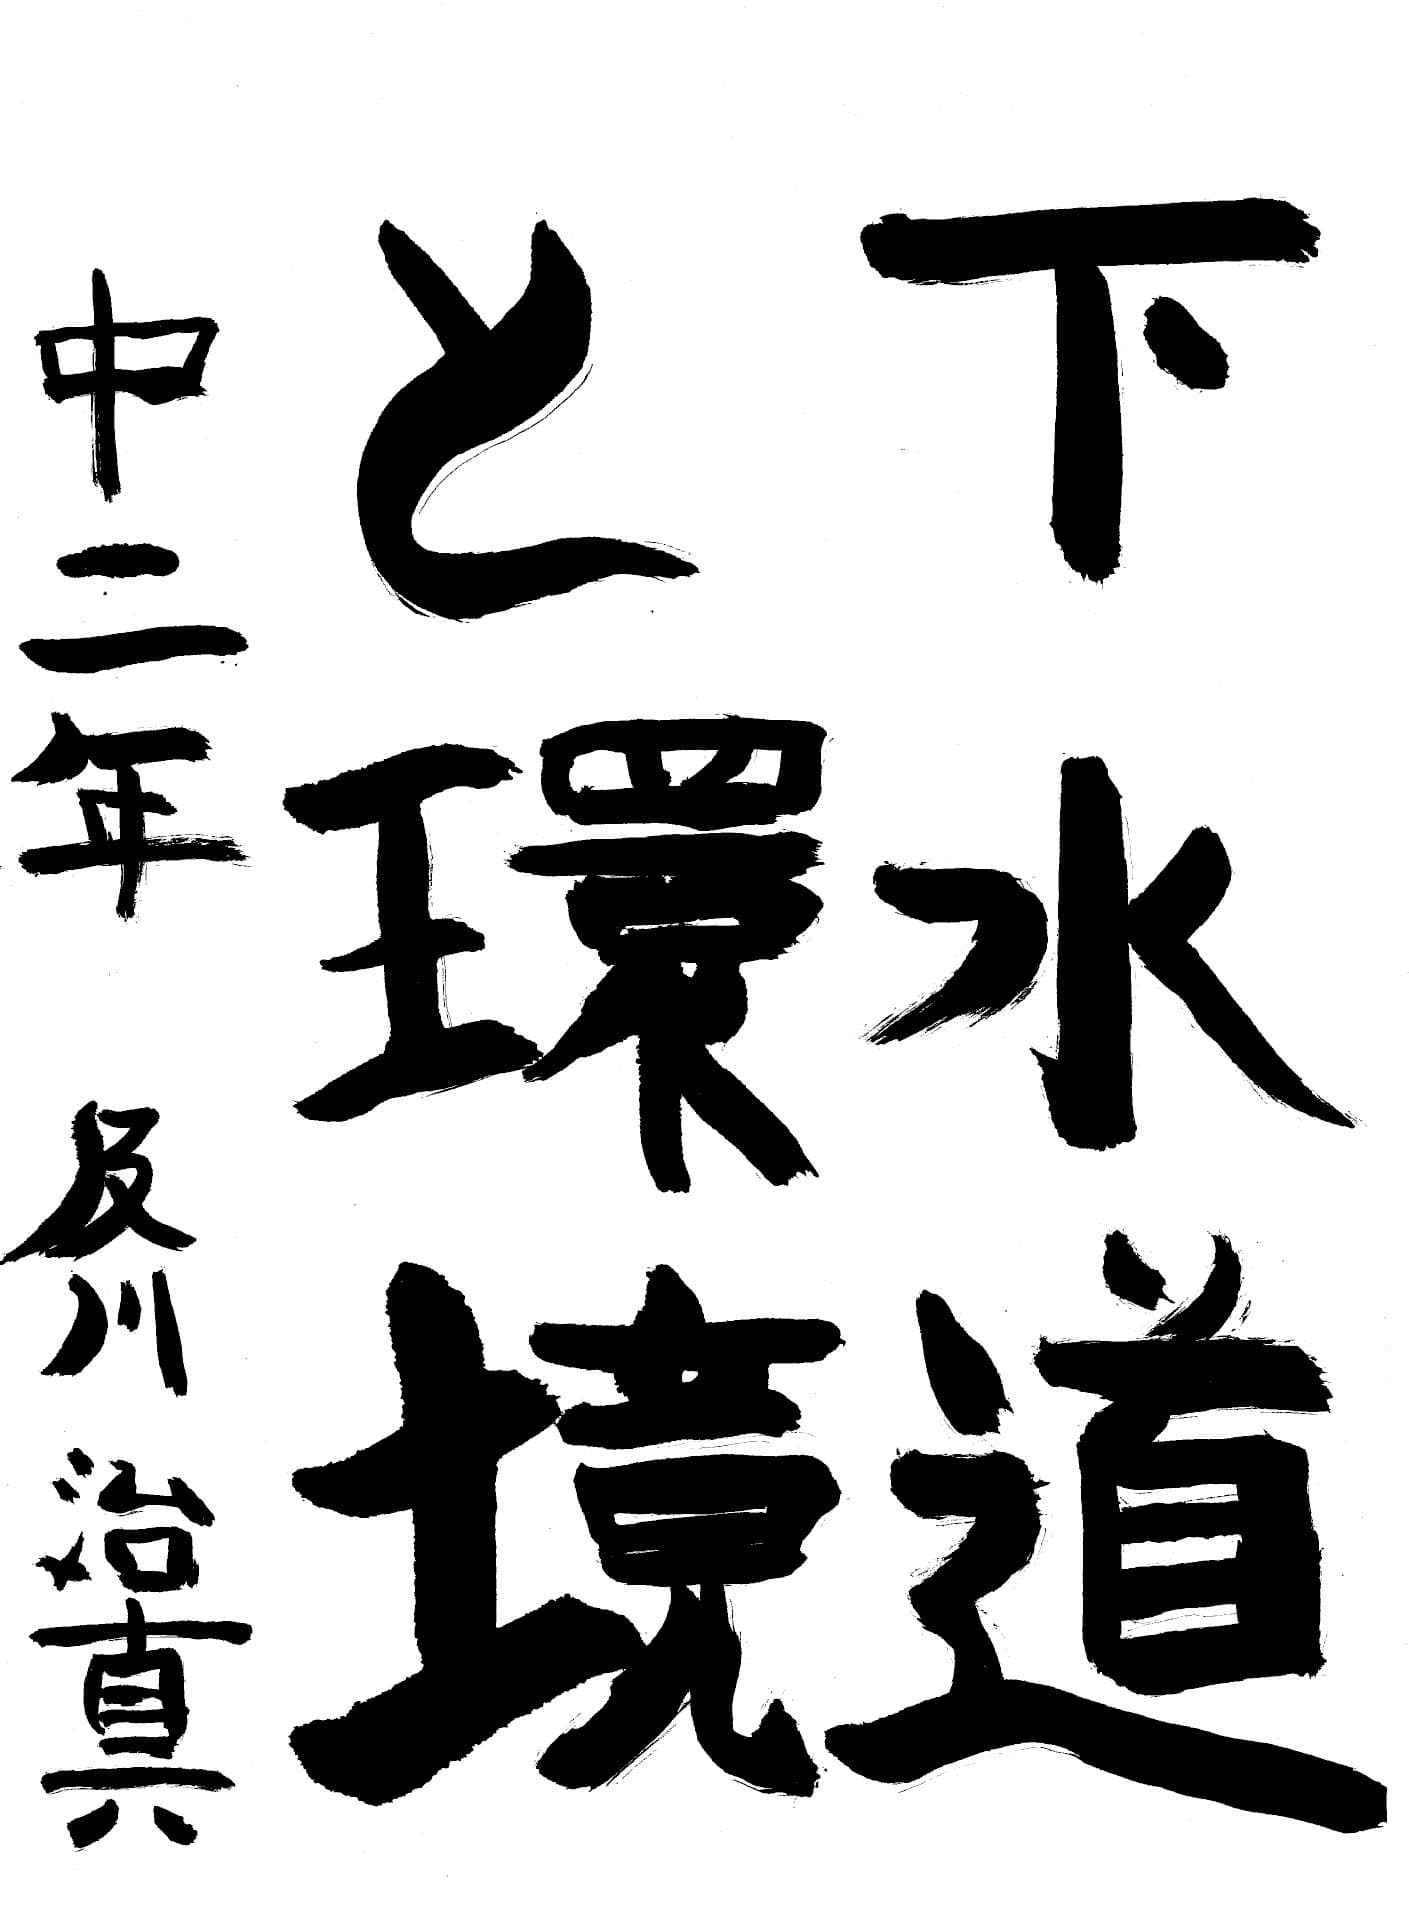 下水道
と環境
中二年 及川治真